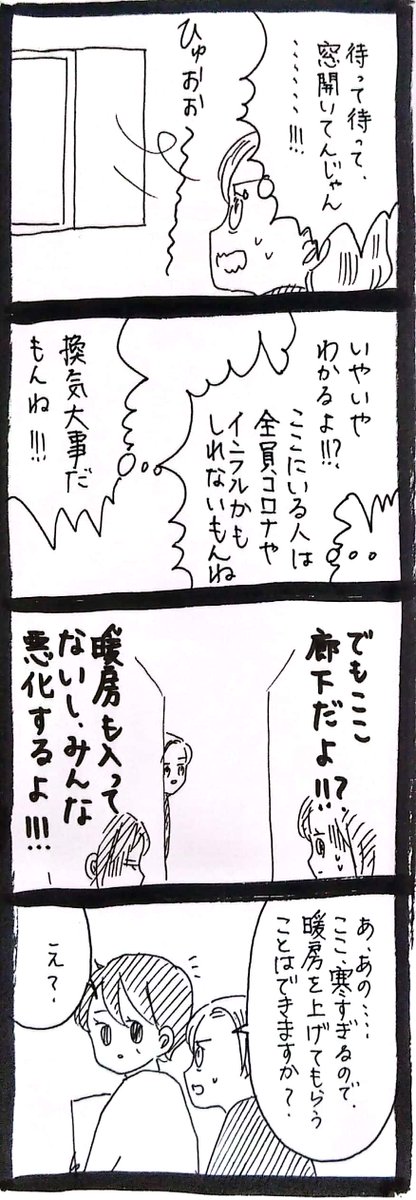 待って待って、
窓開いてんじゃん
、、、、、、!!!
ひゅおお
いやいや
わかるよ!!?
ここにいる人は
全員コロナや
インフルかも
しれないもんね
換気大事だ
もんね!!!
でもここ
廊下だよ!!?
暖房も入って
ないし、みんな
悪化するよ!!!
あ、あの...、
ここ、寒すぎるので、
暖房を上げてもらう
ことはできますか?
え?